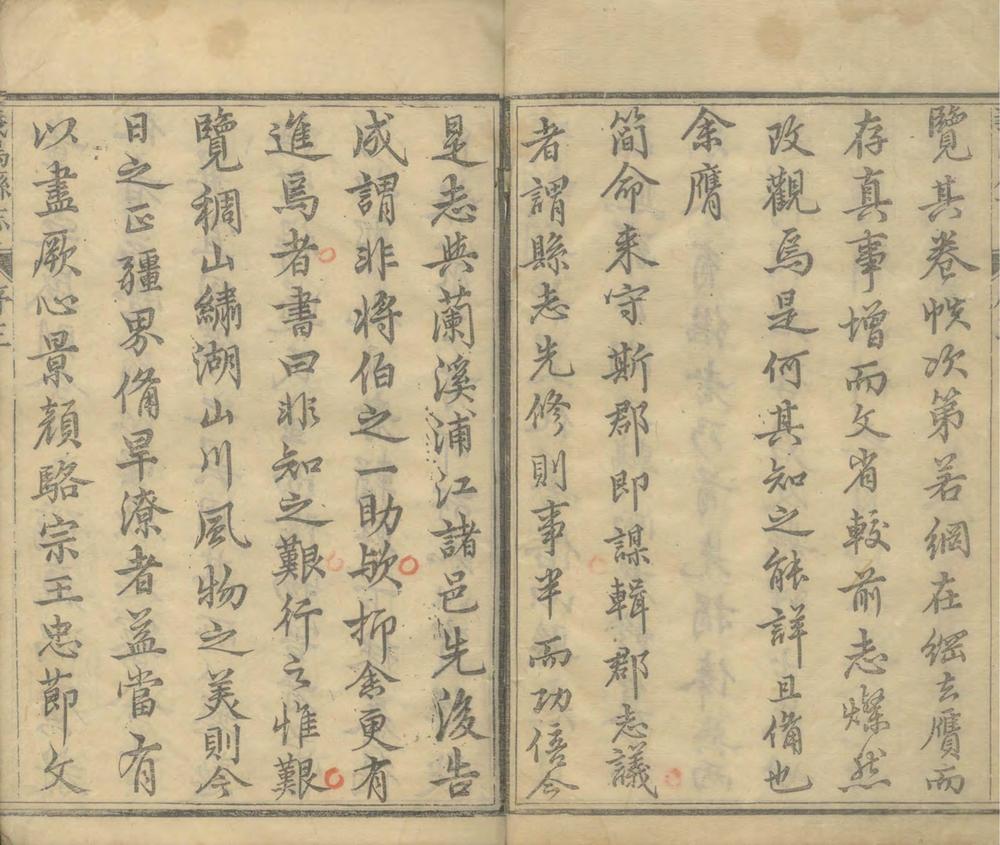 覽其卷帙次第若網在綱去贗而
存真事增而文省較前志燦然
改觀焉是何其知之能詳且備也
余膺
簡命来守斯郡即謀輯郡志議
者謂縣志先修則事半而功倍今
是志與蘭溪浦江諸邑先後告
成謂非將伯之一助歟抑余更有
進焉者書曰非知之艱行之惟艱
覽稠山繡湖山川風物之美則今
日之正疆界俻旱潦者益當有
以盡厥心景顔駱宗王忠節文
義烏縣志 序 三